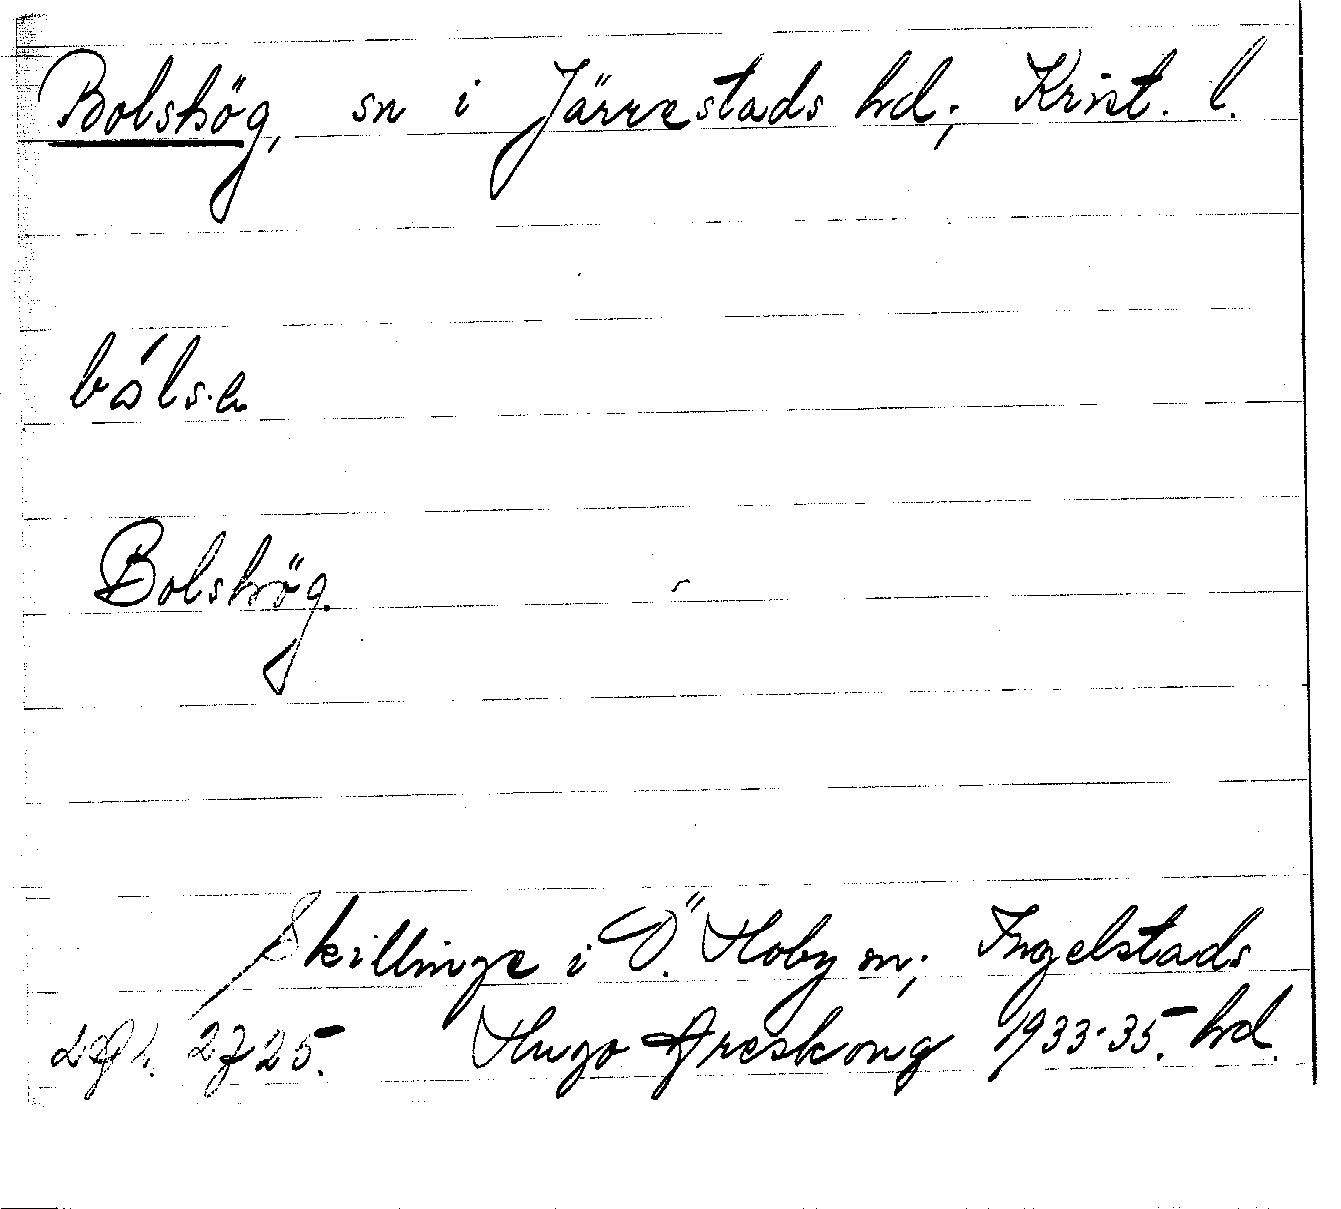 Bolshög, sn i Järrestads hd; Krist. l.
Bolshög.
Skillinge i Ö. Hoby sn; Ingelstads
2725. Hugo Areskoug 1933-35. hd.